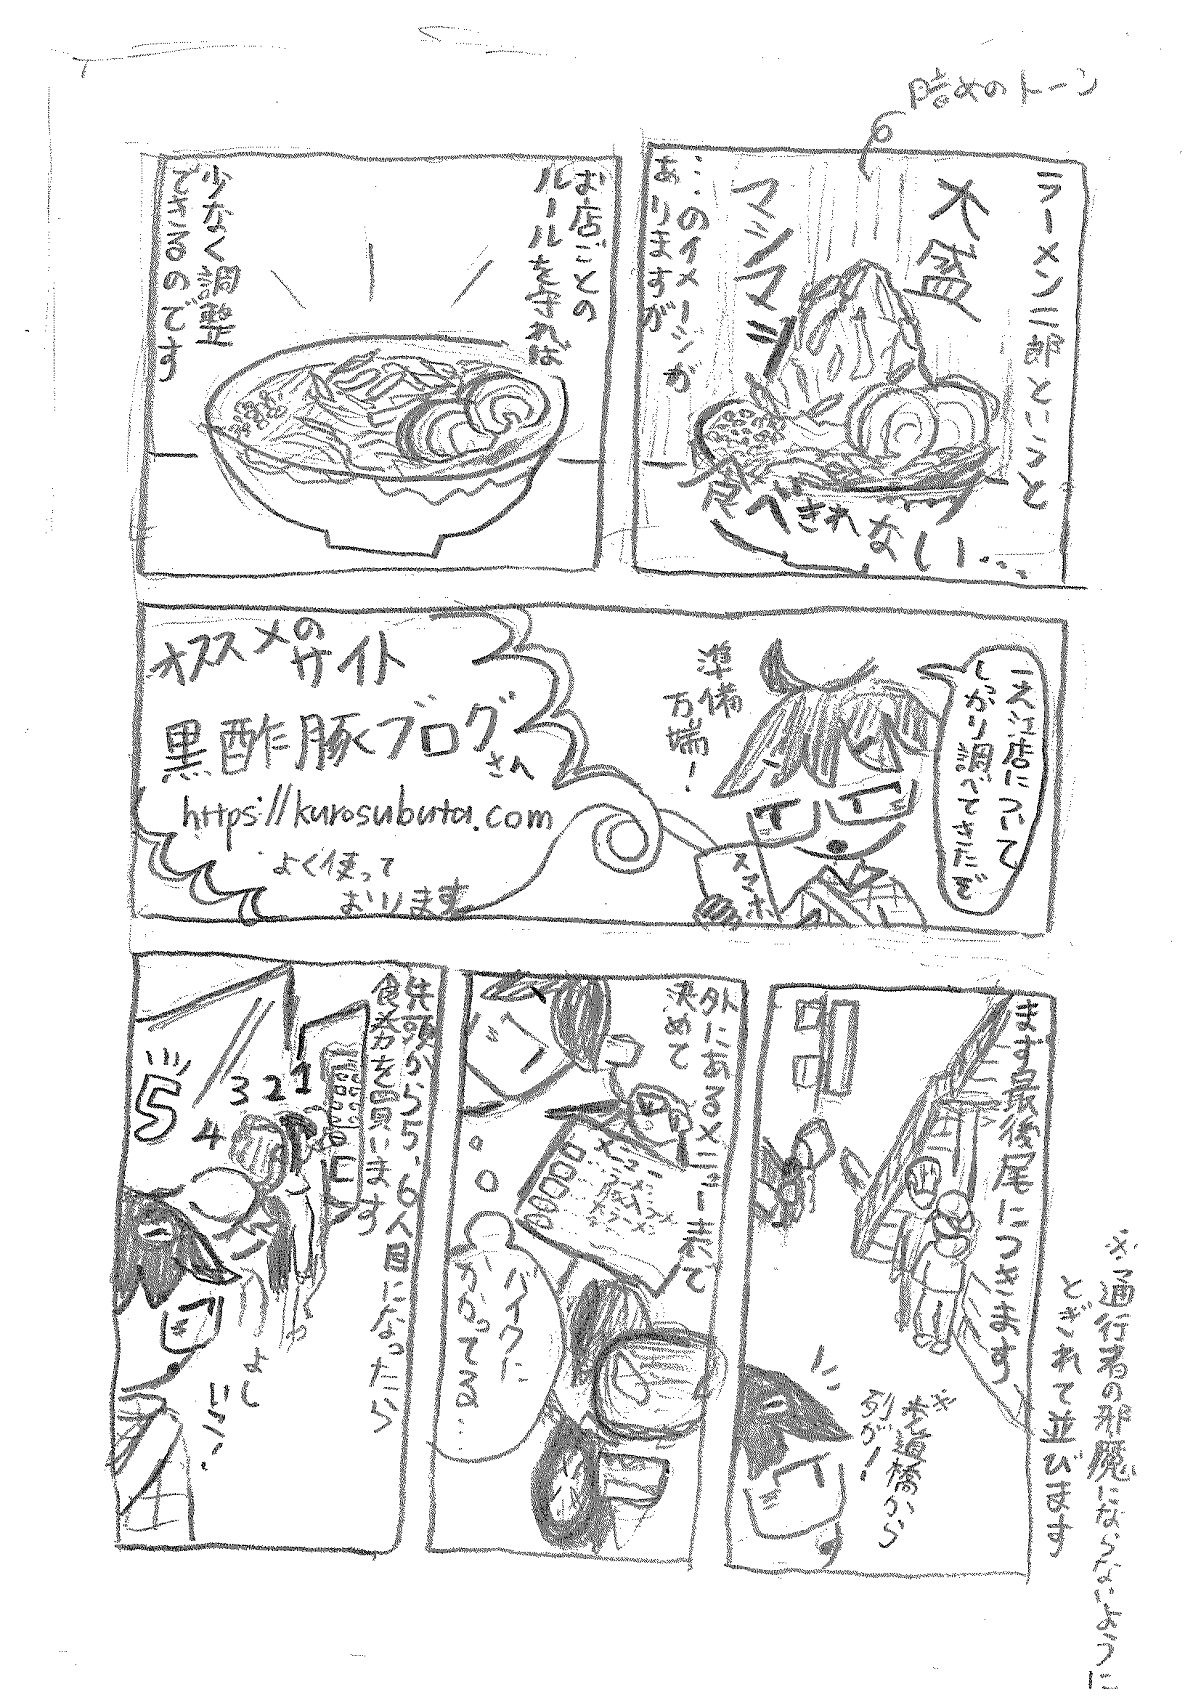 暗めのトーン
ラーメン二郎というと
大盛
マシマシ
食べきれない…
…のイメージが
ありますが
お店ごとの
ルールを守れば
少なく調整
できるのです
一之江店について
しっかり調べてきたぞ
準備
万端!
スマホ
オススメの
サイト
黒酢豚ブログ
さん
https://kurosubuta.com
よく使って
おります
まず最後尾につきます
歩道橋から
列が!
※通行者の邪魔にならないように
とぎれて並びます
外にあるメニュー表で
決めて
メニュー
バイクに
かかってる…
先頭から5、6人目になったら
食券を買います
1
2
3
4
5
よし
いこう